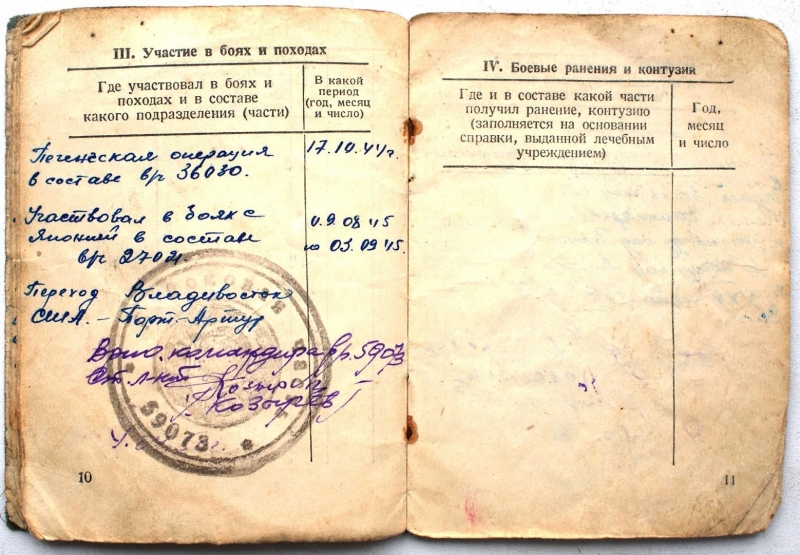 III. Участие в боях и походах
Где участвовал в боях и
походах и в составе
какого подразделения (части)
В какой
период
(год, месяц
и число)
Печенгская операция
в составе в/ч 36030.
17.10.44г.
Участвовал в боях с
Японией в составе
в/ч 27021.
с 9.08.45
по 03.09.45.
Переход Владивосток
США. - Порт-Артур
Врио. командира в/ч 59073
Ст. л-нт
/Козырев/
59073
10
IV. Боевые ранения и контузии
Где и в составе какой части
получил ранение, контузию
(заполняется на основании
справки, выданной лечебным
учреждением)
Год,
месяц
и число
11